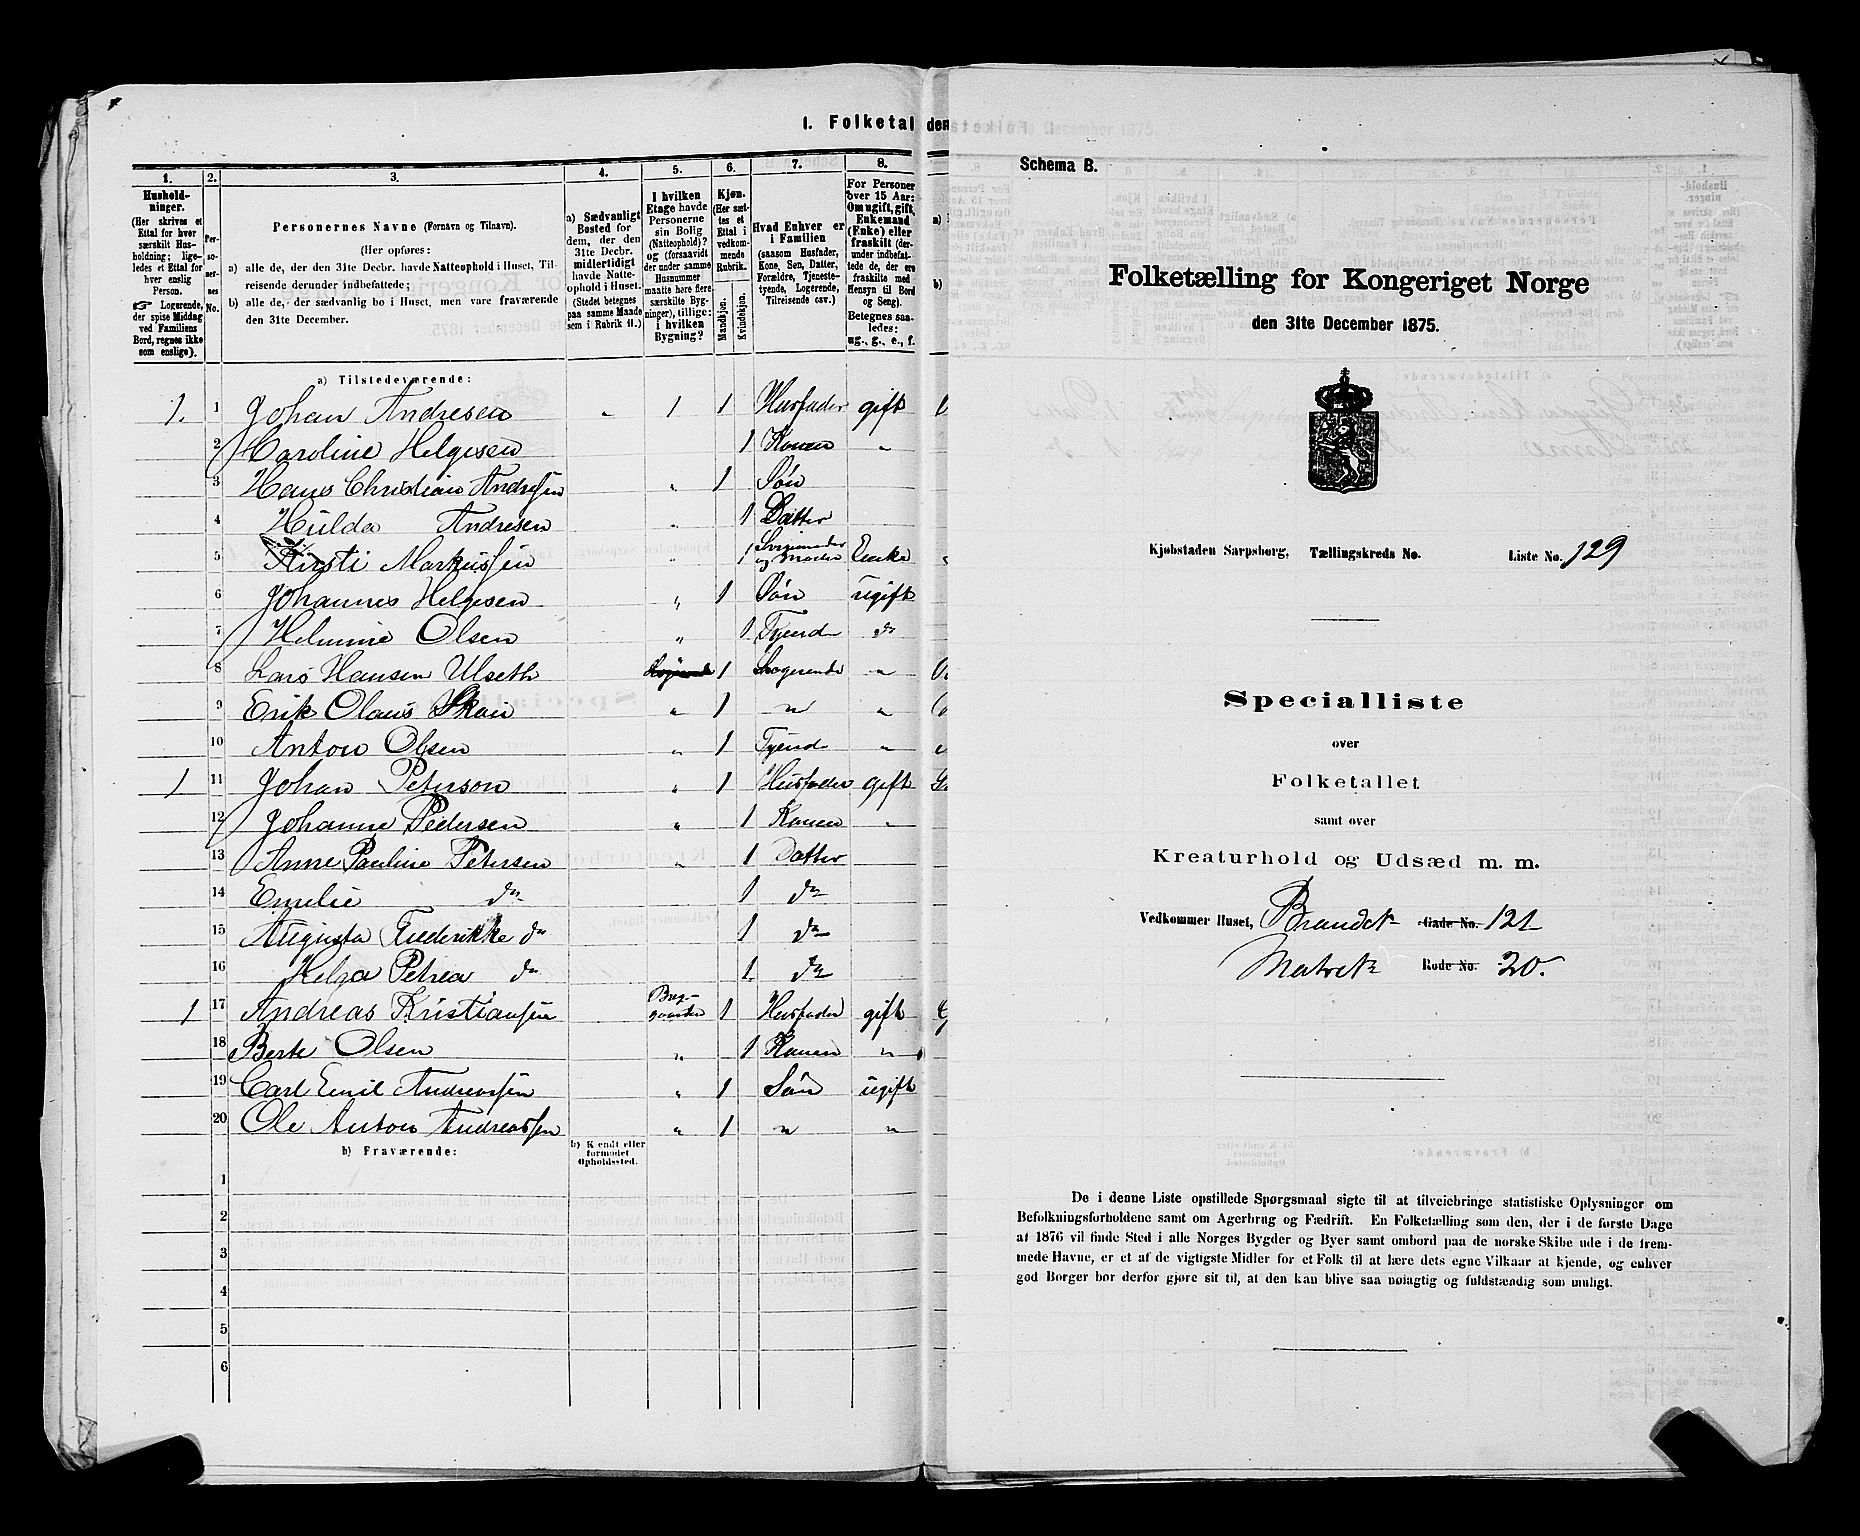 I. Folketal den
1. 2. 3. 4. 5. 6. 7. 8.
Hushold-
ninger.
(Her skrives et
Ettal for hver
særskilt Hus-
holdning; lige-
ledes et Ettal for
hver enslig
Person.
Logerende,
der spise Middag
ved Familiens
Bord, regnes ikke
som enslige).
Per-
so-
ner-
nes
No.
Personernes Navne (Fornavn og Tilnavn).
(Her opføres:
a) alle de, der den 31te Decbr. havde Natteophold i Huset, Til-
reisende derunder indbefattede;
b) alle de, der sædvanlig bo i Huset, men vare fraværende
den 31te December.
a) Sædvanligt
Bosted for
dem, der den
31te Decbr.
midlertidigt
havde Natte-
ophold i Huset.
(Stedet betegnes
paa samme Maade
som i Rubrik 11.)
I hvilken
Etage havde
Personerne
sin Bolig
(Natteophold)?
og (forsaavidt
der under samme
Husnummer
maatte høre flere
særskilte Byg-
ninger), tillige:
i hvilken
Bygning?
Kjøn.
(Her sæt-
tes et
Ettal i
vedkom-
mende
Rubrik.
Mandkjøn.
Kvindekjøn.
Hvad Enhver er
i Familien
(saasom Husfader,
Kone, Søn, Datter,
Forældre, Tjeneste-
tyende, Logerende,
Tilreisende osv.)
For Personer
over 15 Aar:
Om ugift, gift,
Enkemand
(Enke) eller
fraskilt (der-
under indbefat-
tede de, der ere
fraskilte med
Hensyn til Bord
og Seng).
Betegnes saa-
ledes:
ug., g., e., f.
a)
b)
a) Tilstedeværende:
1. 1 Johan Andresen „ 1 1 Husfader gift
2 Caroline Helgesen 1 Konen „
3 Hans Christian Andresen „ 1 Søn
4 Hulda Andresen „ 1 Datter
5 Kirsti Markussen „ 1 og Moder Enke
6 Johannes Helgesen „ 1 Søn ugift
7 Helmine Olsen „ 1 Tyende do
8 Lars Hansen Ulseth 1 Logerende „
9 Erik Olaus Skau „ 1 „ „
10 Anton Olsen „ 1 Tyende „
1 11 Johan Peterson „ 1 Husfader gift
12 Johanne Pedersen „ 1 Konen „
13 Anne Pauline Petersen „ 1 Datter
14 Emelie do 1 do
15 Augusta Frederikke do 1 do
16 Helga Petrea do 1 do
1 17 Andreas Kristiansen Byg-
gaarden 1 Husfader gift
18 Berte Olsen „ 1 Konen „
19 Carl Emil Andreassen „ 1 Søn ugift
20 Ole Anton Andreassen „ 1 „ „
b) Fraværende:
b) Kendt eller
formodet
Opholdssted.
1
2
3
4
5
6
Schema B.
Folketælling for Kongeriget Norge
den 31te December 1875.
Kjøbstaden Sarpsborg, Tællingskreds No. Liste No. 129
Specialliste
over
Folketallet
samt over
Kreaturhold og Udsæd m. m.
Vedkommer Huset, Brandt Gade No. 121
Matrek Rode No. 20.
De i denne Liste opstillede Spørgsmaal sigte til at tilveiebringe statistiske Oplysninger om
Befolkningsforholdene samt om Agerbrug og Fædrift. En Folketælling som den, der i de første Dage
af 1876 vil finde Sted i alle Norges Bygder og Byer samt ombord paa de norske Skibe ude i de frem-
mede Havne, er et af de vigtigste Midler for et Folk til at lære dets egne Vilkaar at kjende, og enhver
god Borger bør derfor gjøre sit til, at den kan blive saa nøiagtig og fuldstændig som muligt.